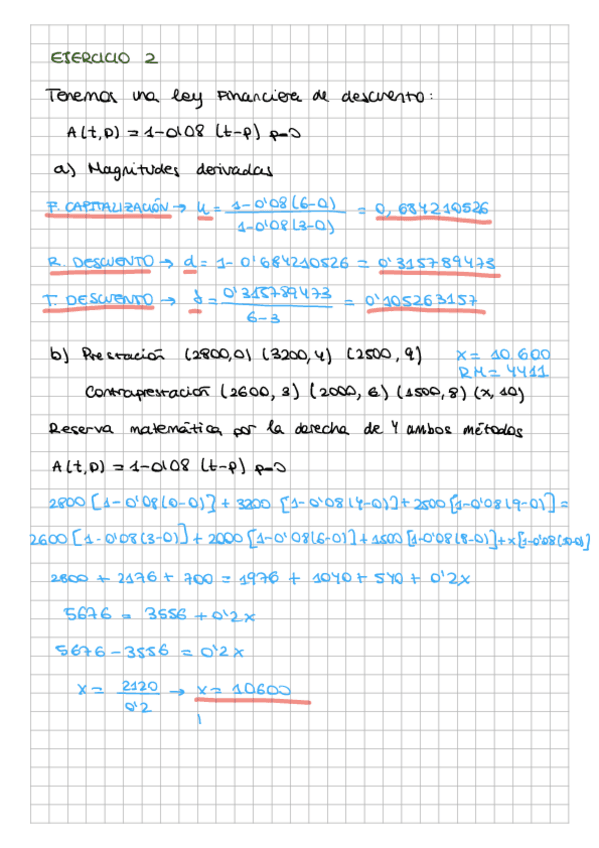 EJERCICIO 2
Tenemos una ley Financiera de descuento:
A(t,p) = 1-0'08 (t-p) p=0
a) Magnitudes derivadas
F. CAPITALIZACIÓN → u = 1-0'08(6-0) / 1-0'08(3-0) = 0,684210526
R. DESCUENTO → d = 1-0'684210526 = 0'315789473
T. DESCUENTO → δ = 0'315789473 / 6-3 = 0'105263157
b) Prestación (2800,0) (3200,4) (2500,9) x = 10.600
RM = 4411
Contraprestación (2600,3) (2000,6) (1500,8) (x,10)
Reserva matemática por la derecha de 4 ambos métodos
A(t,p) = 1-0'08 (t-p) p=0
2800 [1-0'08(0-0)] + 3200 [1-0'08(4-0)] + 2500 [1-0'08(9-0)] =
2600 [1-0'08(3-0)] + 2000 [1-0'08(6-0)] + 1500 [1-0'08(8-0)] + x [1-0'08(10-0)]
2800 + 2176 + 700 = 1976 + 1040 + 540 + 0'2x
5676 = 3556 + 0'2x
5676 - 3556 = 0'2x
x = 2120 / 0'2 → x = 10600